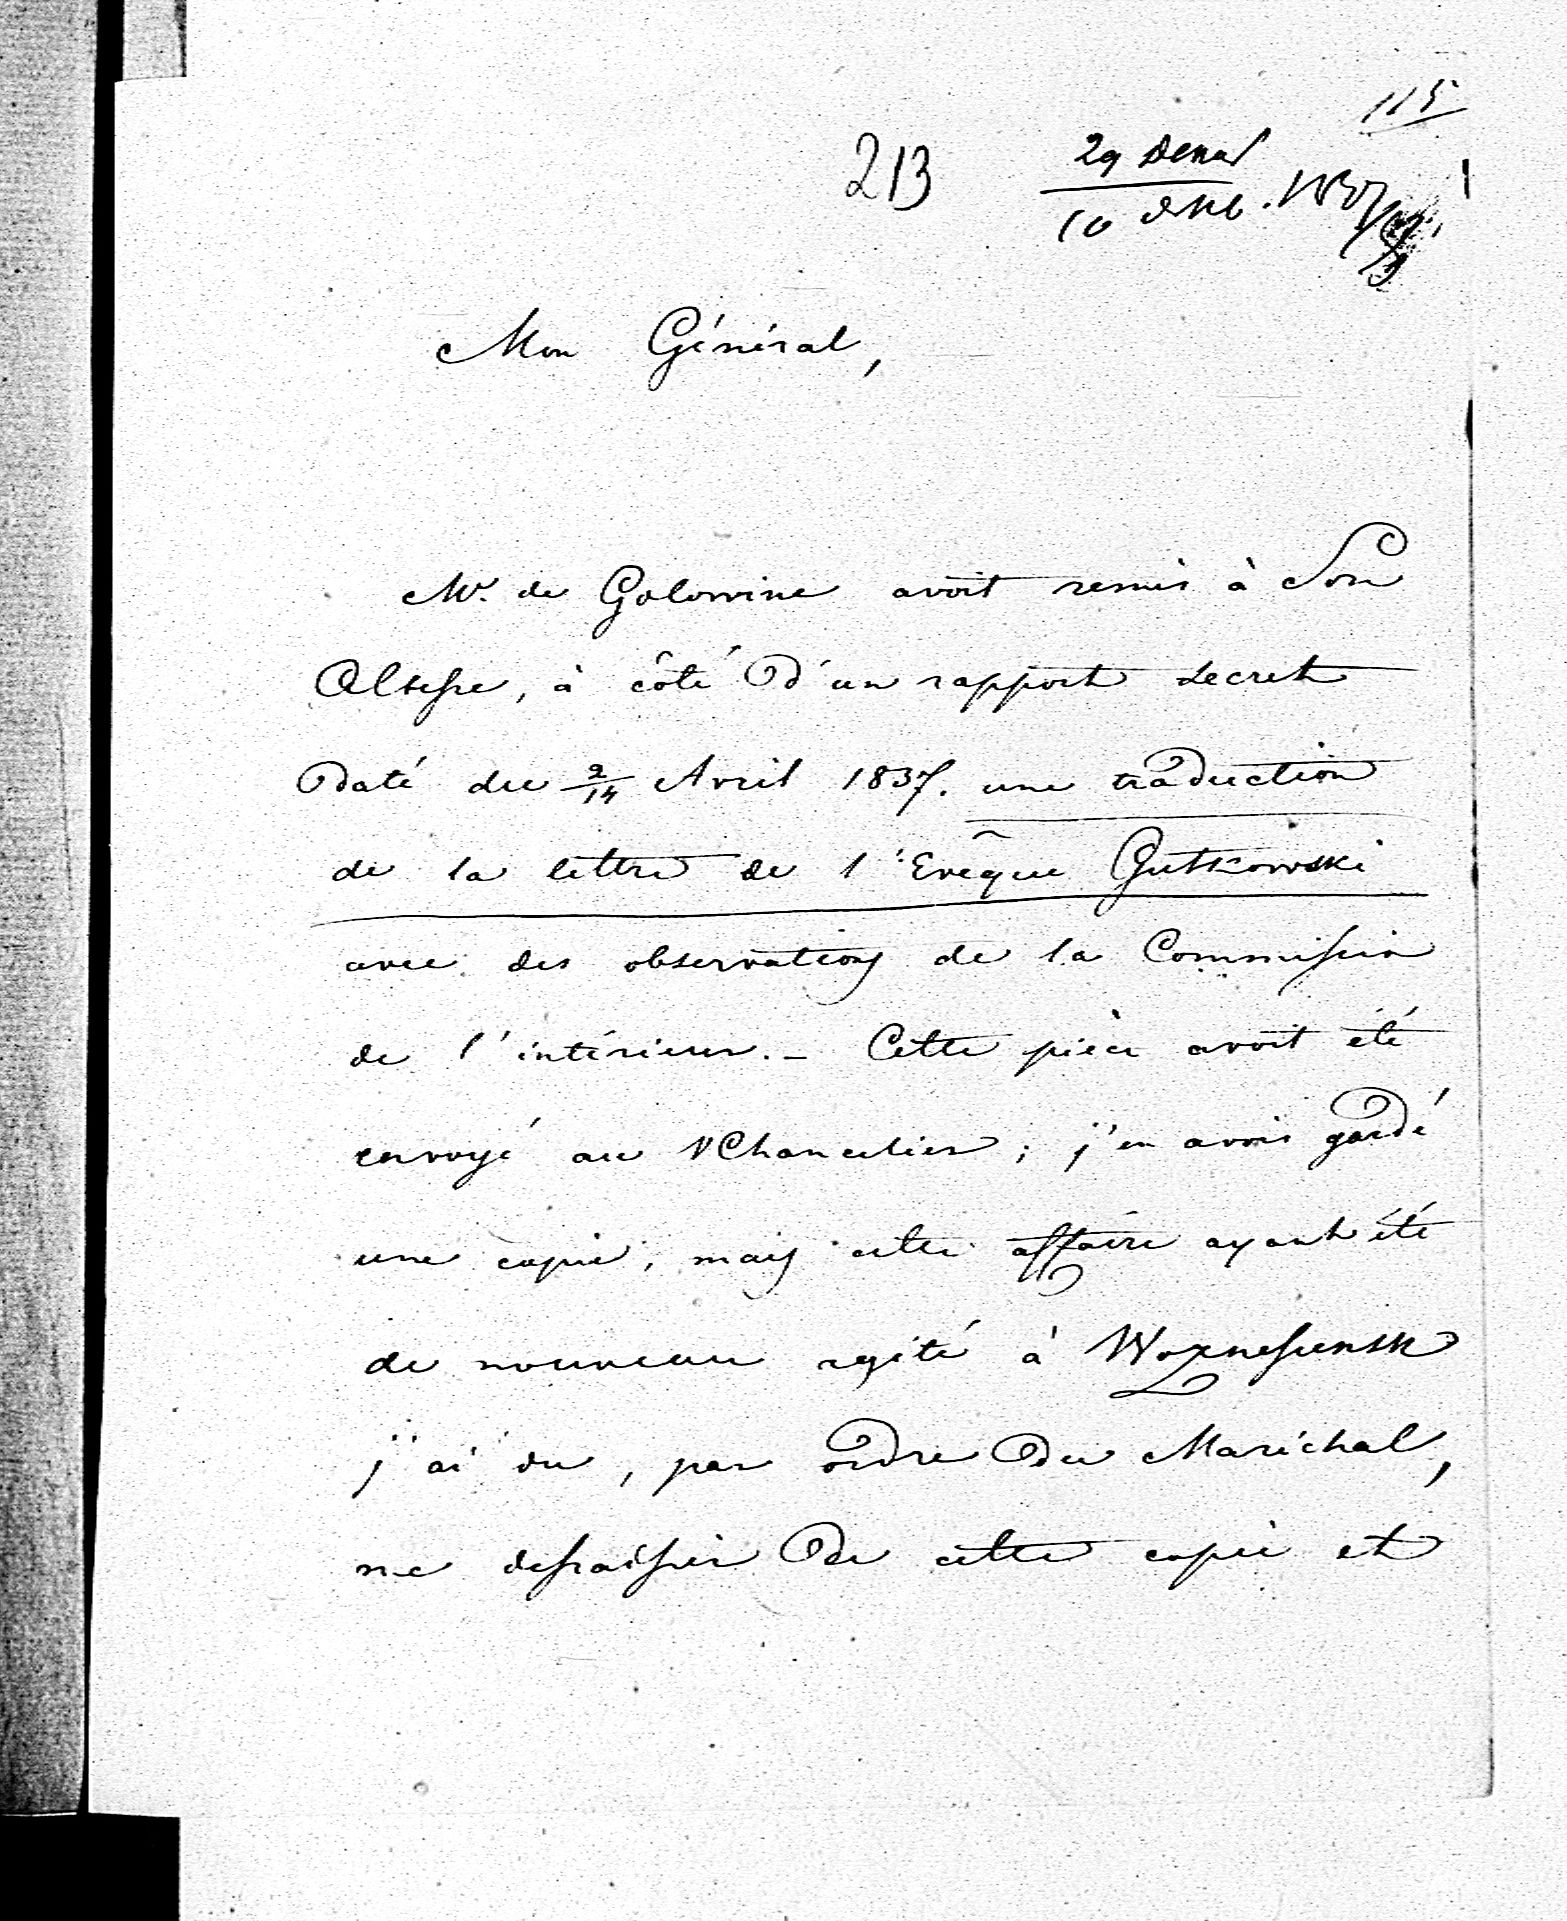 115
213
29 Декаб
10 Янв. 1837/8
Mon Général,
Mr. de Golowine avoit remis à Son
Altesse, à côté d'un rapport secret
daté du 2/14 Avril 1837. une traduction
de la lettre de l'Evêque Gutkowski
avec des observations de la Commission
de l'intérieur. - Cette pièce avoit été
envoyé au VChancelier; j'en avois gardé
une copie, mais cette affaire ayant été
de nouveau agité à Woznessensk
j'ai du, par ordre du Maréchal,
me dessaisir de cette copie et